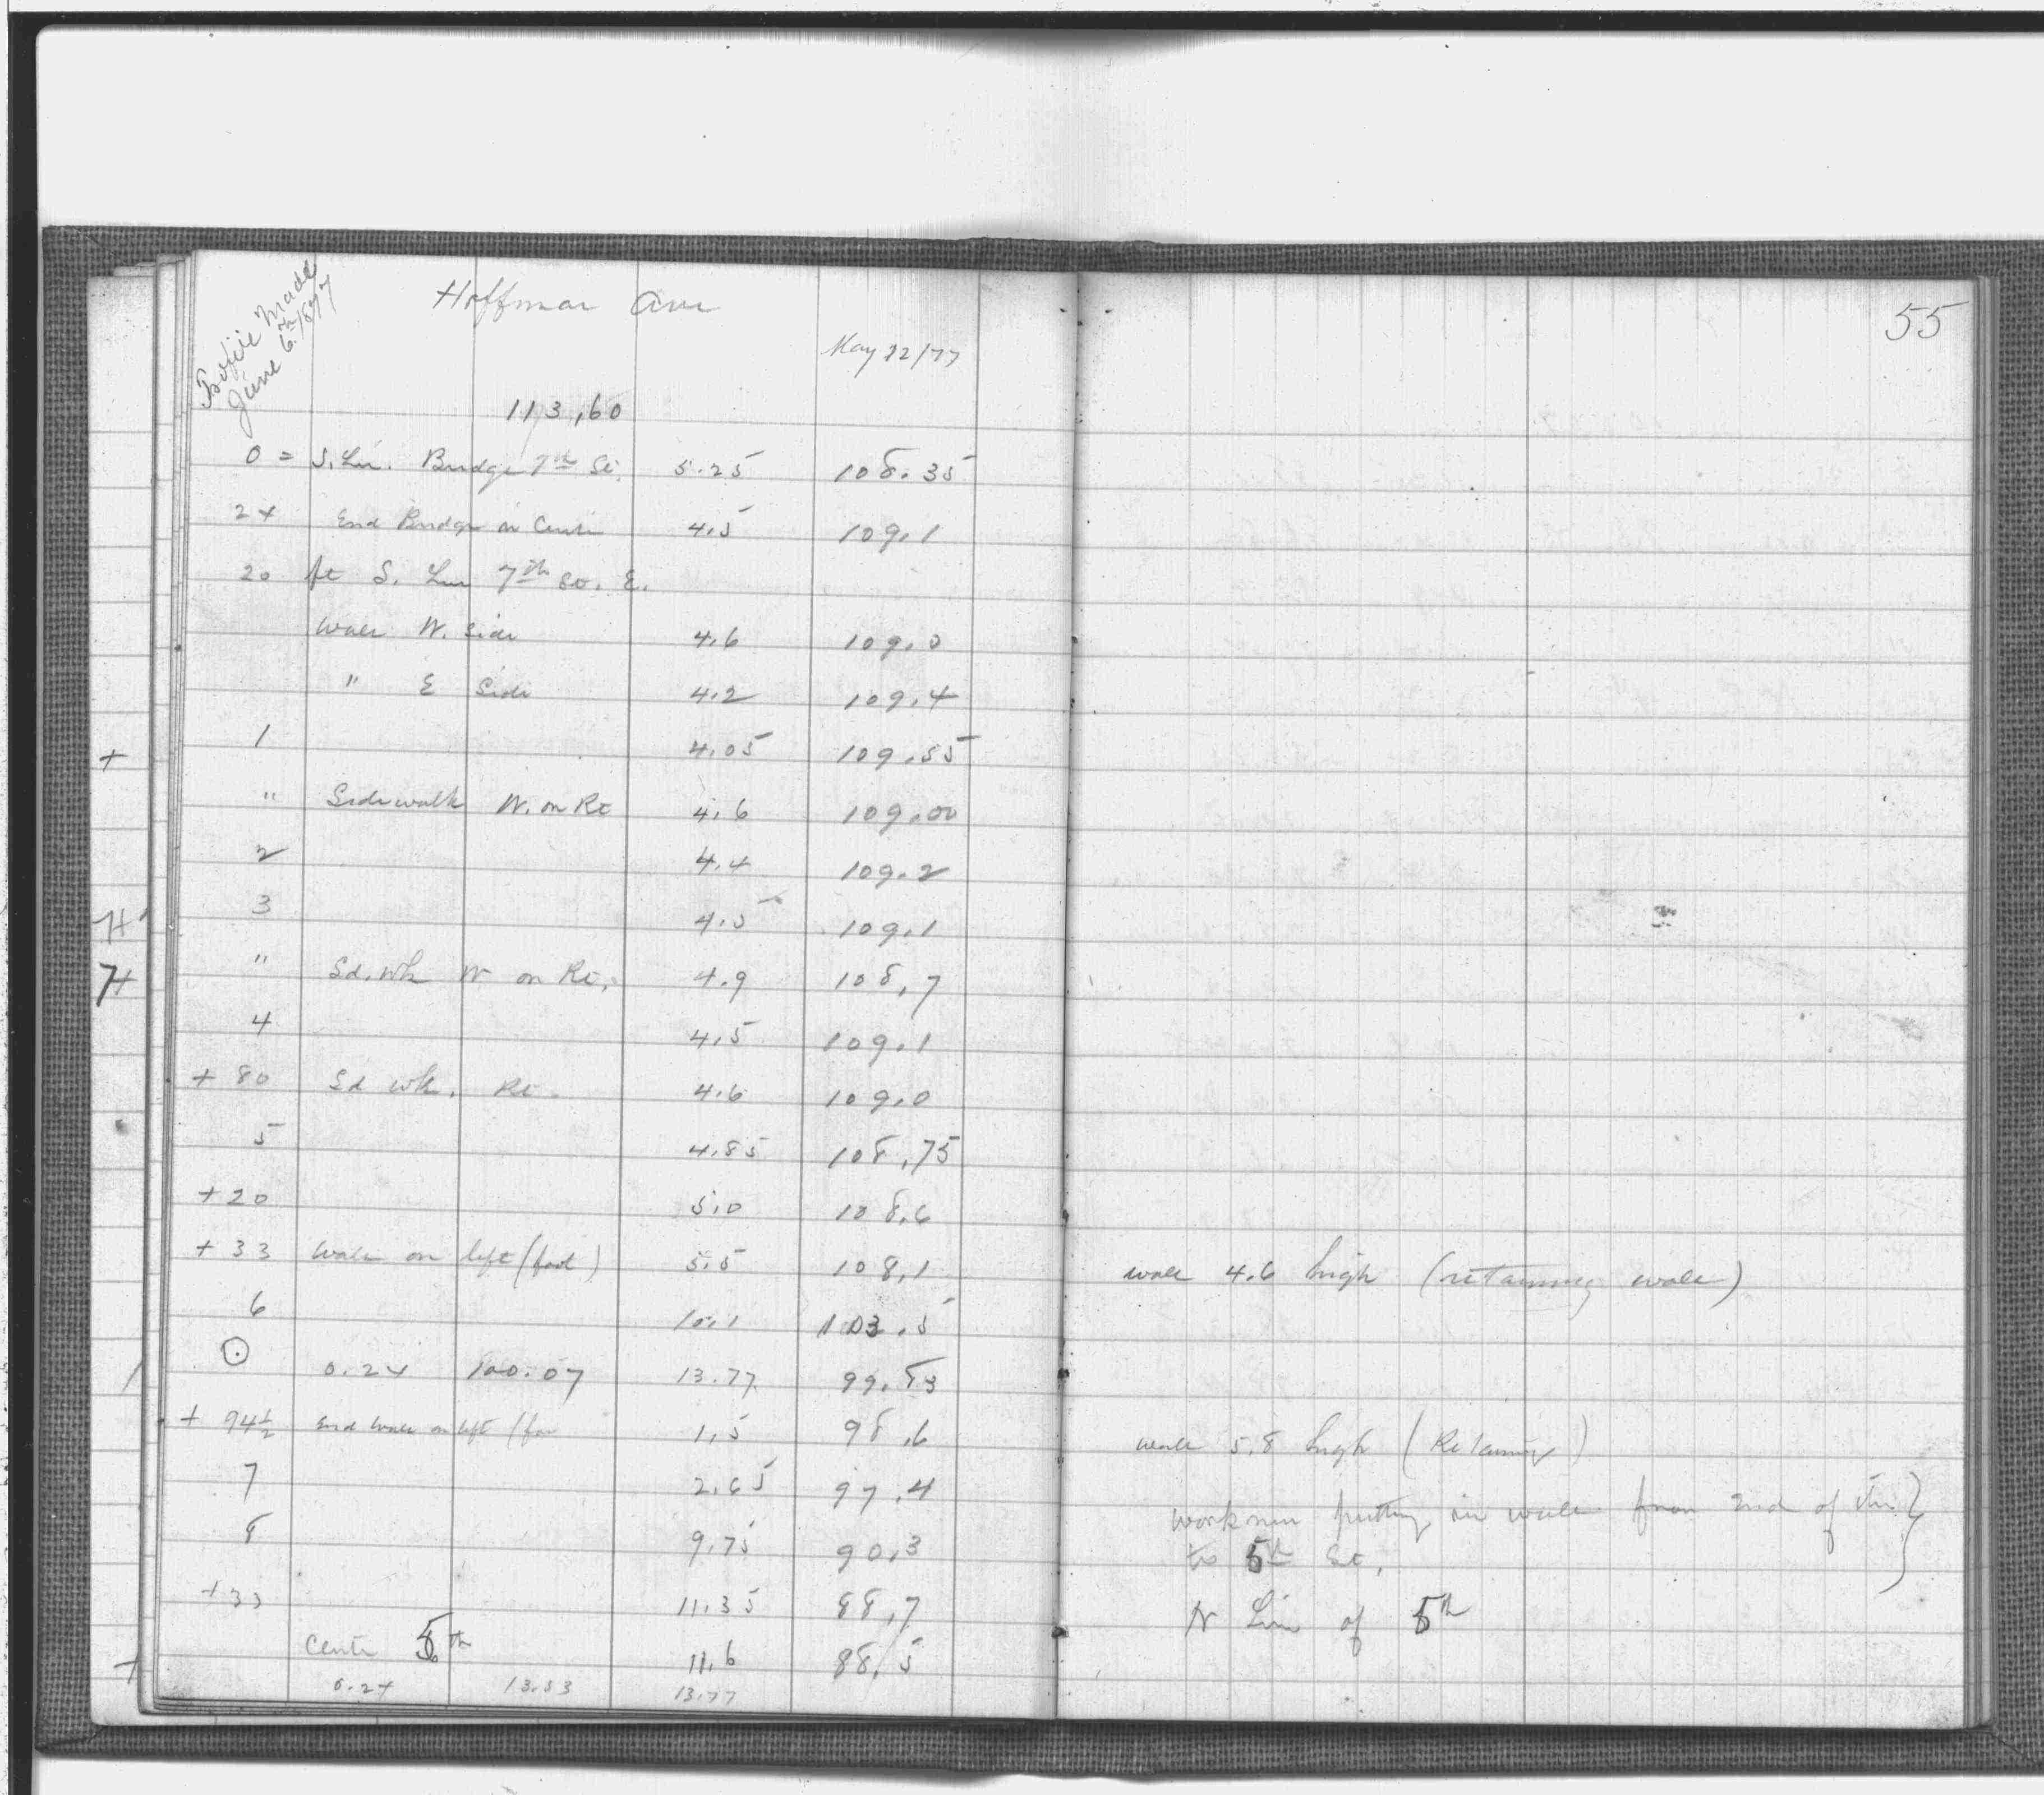 Profile Made
June 6th 1877
Hoffman Ave
May 22/77
55
113.60
0 = S. Lin. Bridge 7th St. 5.25 108.35
24 End Bridge in Centre 4.5 109.1
20 ft S. Line 7th St. E.
Walk W. Side 4.6 109.0
" E Side 4.2 109.4
1 4.05 109.55
" Sidewalk W. on Rt 4.6 109.00
2 4.4 109.2
3 4.5 109.1
" Sd. Wk W on Rt. 4.9 108.7
4 4.5 109.1
+ 80 Sd Wk. Rt. 4.6 109.0
5 4.85 108.75
+ 20 5.0 108.6
+ 33 Wall on left (foot) 5.5 108.1 wall 4.6 high (retaining wall)
6 10.1 103.5
⊙ 0.24 100.07 13.77 99.83
+ 94½ End Wall on left 1.5 98.6 wall 5.8 high (Retaining)
7 2.65 97.4
workmen putting in wall from end of this
8 9.75 90.3 to 5th St.
+33 11.35 88.7 N Line of 5th
Centre 5th 11.6 88.5
0.24 13.53 13.77